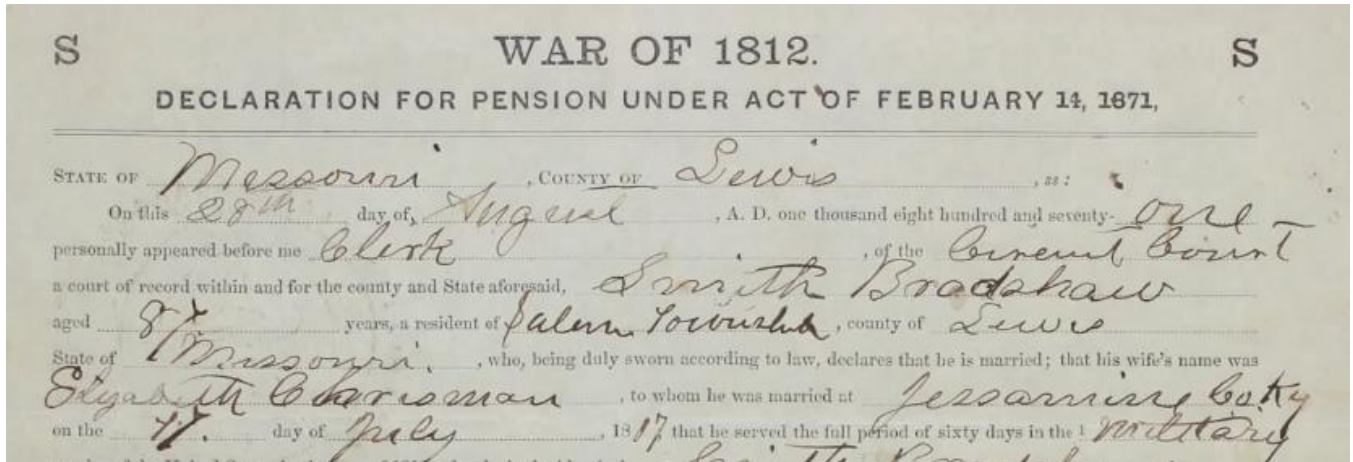 S WAR OF 1812. S
DECLARATION FOR PENSION UNDER ACT OF FEBRUARY 14, 1871,
STATE OF Missouri, COUNTY OF Lewis, ss:
On this 28th day of, August, A. D. one thousand eight hundred and seventy-one
personally appeared before me Clerk, of the Circuit Court
a court of record within and for the county and State aforesaid, Smith Bradshaw
aged years, a resident of Salem Township, county of Lewis
State of Missouri., who, being duly sworn according to law, declares that he is married; that his wife's name was
Elizabeth Chrisman, to whom he was married at Jessamine Co. Ky
on the 17. day of July, 1817 that he served the full period of sixty days in the 1 military